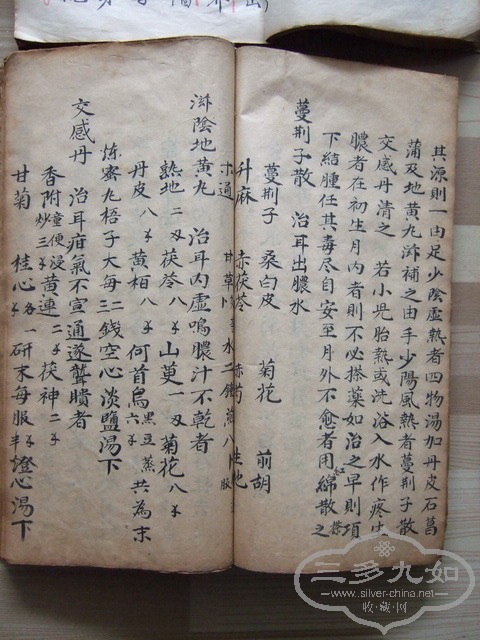 其源則一由足少陰虛熱者四物湯加丹皮石菖
蒲及地黃丸滋補之由手少陽風熱者蔓荆子散
交感丹清之 若小児胎熱或洗浴入水作疼生
膿者在初生月內者則不必搽藥如治之早則項
下結腫任其毒尽自安至月外不愈者用紅綿散搽之
蔓荆子散 治耳出膿水
蔓荆子 桑白皮 菊花 前胡
升麻 赤茯苓 赤芍 生地
木通 甘草 水二鍾煎八 服
滋陰地黃丸 治耳內虛鳴膿汁不乾者
熟地 二 茯苓 八 山萸 一 菊花 八
丹皮 八 黃栢 八 何首烏 黑豆蒸 六 共為末
炼蜜丸梧子大每 錢空心淡鹽湯下
交感丹 治耳疳氣不宣通遂聾聵者
香附 童便浸炒 三 黃連 二 茯神 二
甘菊 桂心 各一 研末每服 半 燈心湯下
三多九如
www.silver-china.net
收藏网